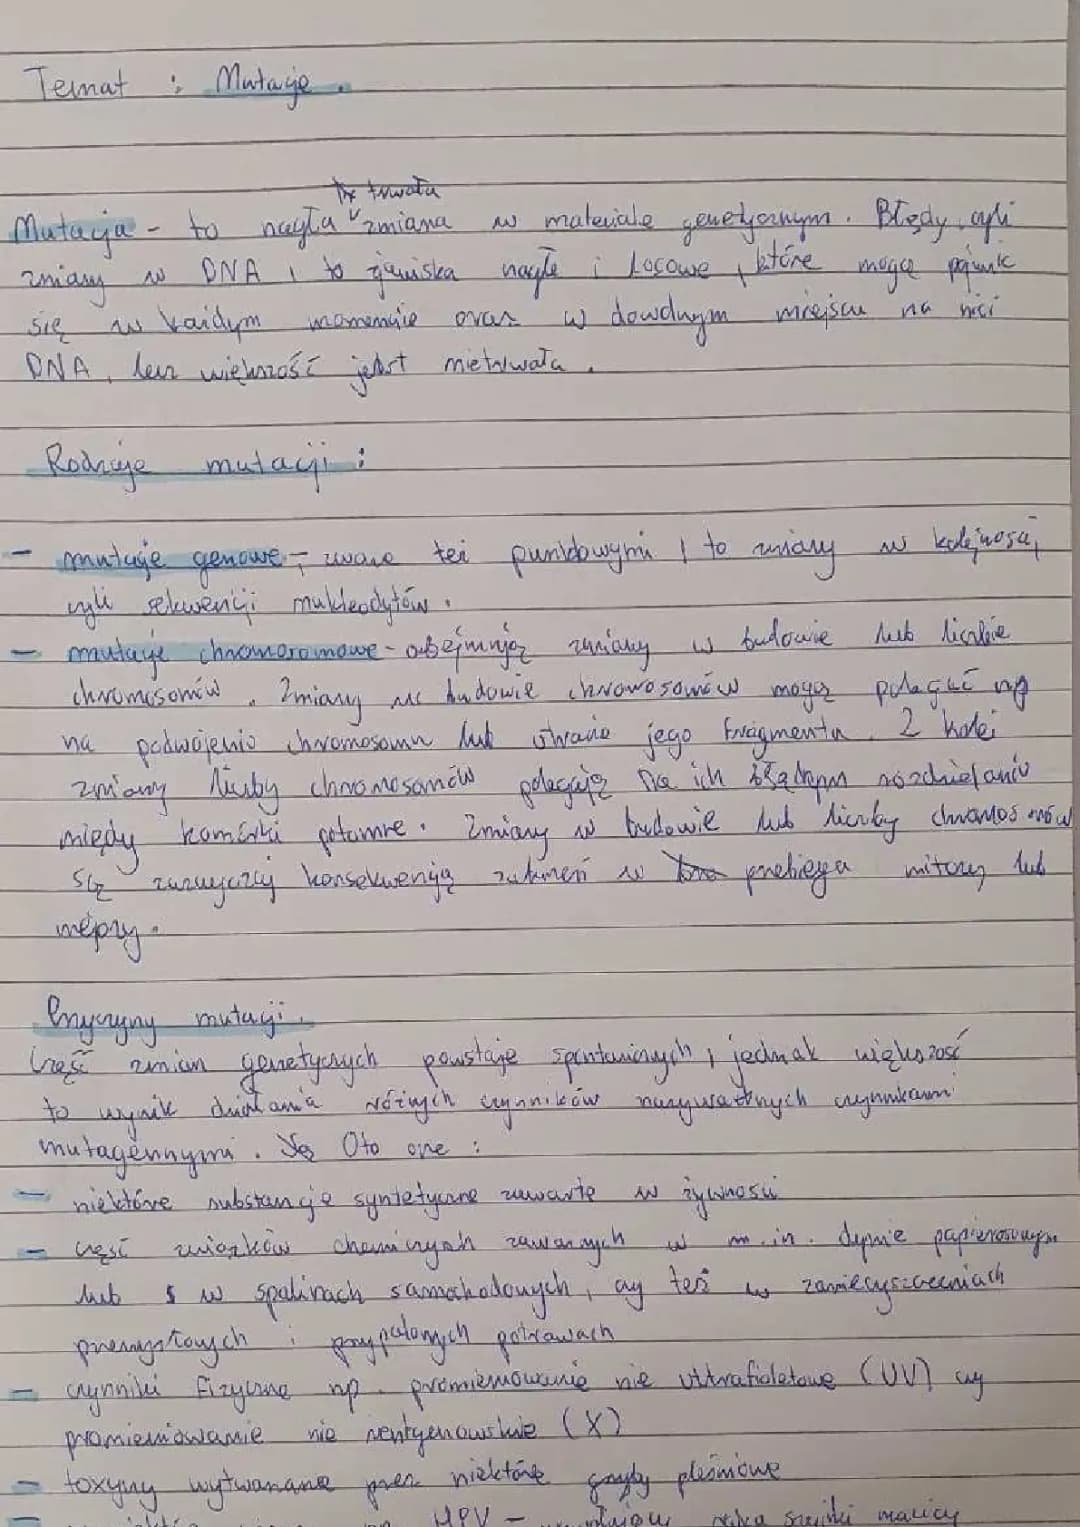 Temat : Mutacje.
trwała
Mutacja - to nagła zmiana w materiale genetycznym. Błędy, czyli
zmiany w DNA, to zjawiska nagłe i losowe, które mogą pojawić
się w każdym momencie oraz w dowolnym miejscu na nici
DNA, lecz większość jest nietrwała.
Rodzaje mutacji:
- mutacje genowe - zwane też punktowymi, to zmiany w kolejności,
czyli sekwencji nukleodytów.
- mutacje chromosomowe - obejmują zmiany w budowie lub liczbie
chromosomów. Zmiany w budowie chromosomów mogą polegać np
na podwojeniu chromosomu lub utracie jego fragmentu. Z kolei
zmiany liczby chromosomów polegają na ich błędnym rozdzieleniu
między komórki potomne. Zmiany w budowie lub liczby chromosomów
są zazwyczaj konsekwencją zaburzeń w przebiegu mitozy lub
mejozy.
Przyczyny mutacji.
Część zmian genetycznych powstaje spontanicznych, jednak większość
to wynik działania różnych czynników nazywanych czynnikami
mutagennymi. Oto one :
- niektóre substancje syntetyczne zawarte w żywności
- część związków chemicznych zawartych w m.in. dymie papierosowym
lub w spalinach samochodowych, czy też w zanieczyszczeniach
przemysłowych i przypalonych potrawach
- czynniki fizyczne np. promieniowanie nie ultrafioletowe (UV) czy
promieniowanie nie rentgenowskie (X)
- toxyny wytwarzane przez niektóre grzyby pleśniowe
HPV - raka szyjki macicy